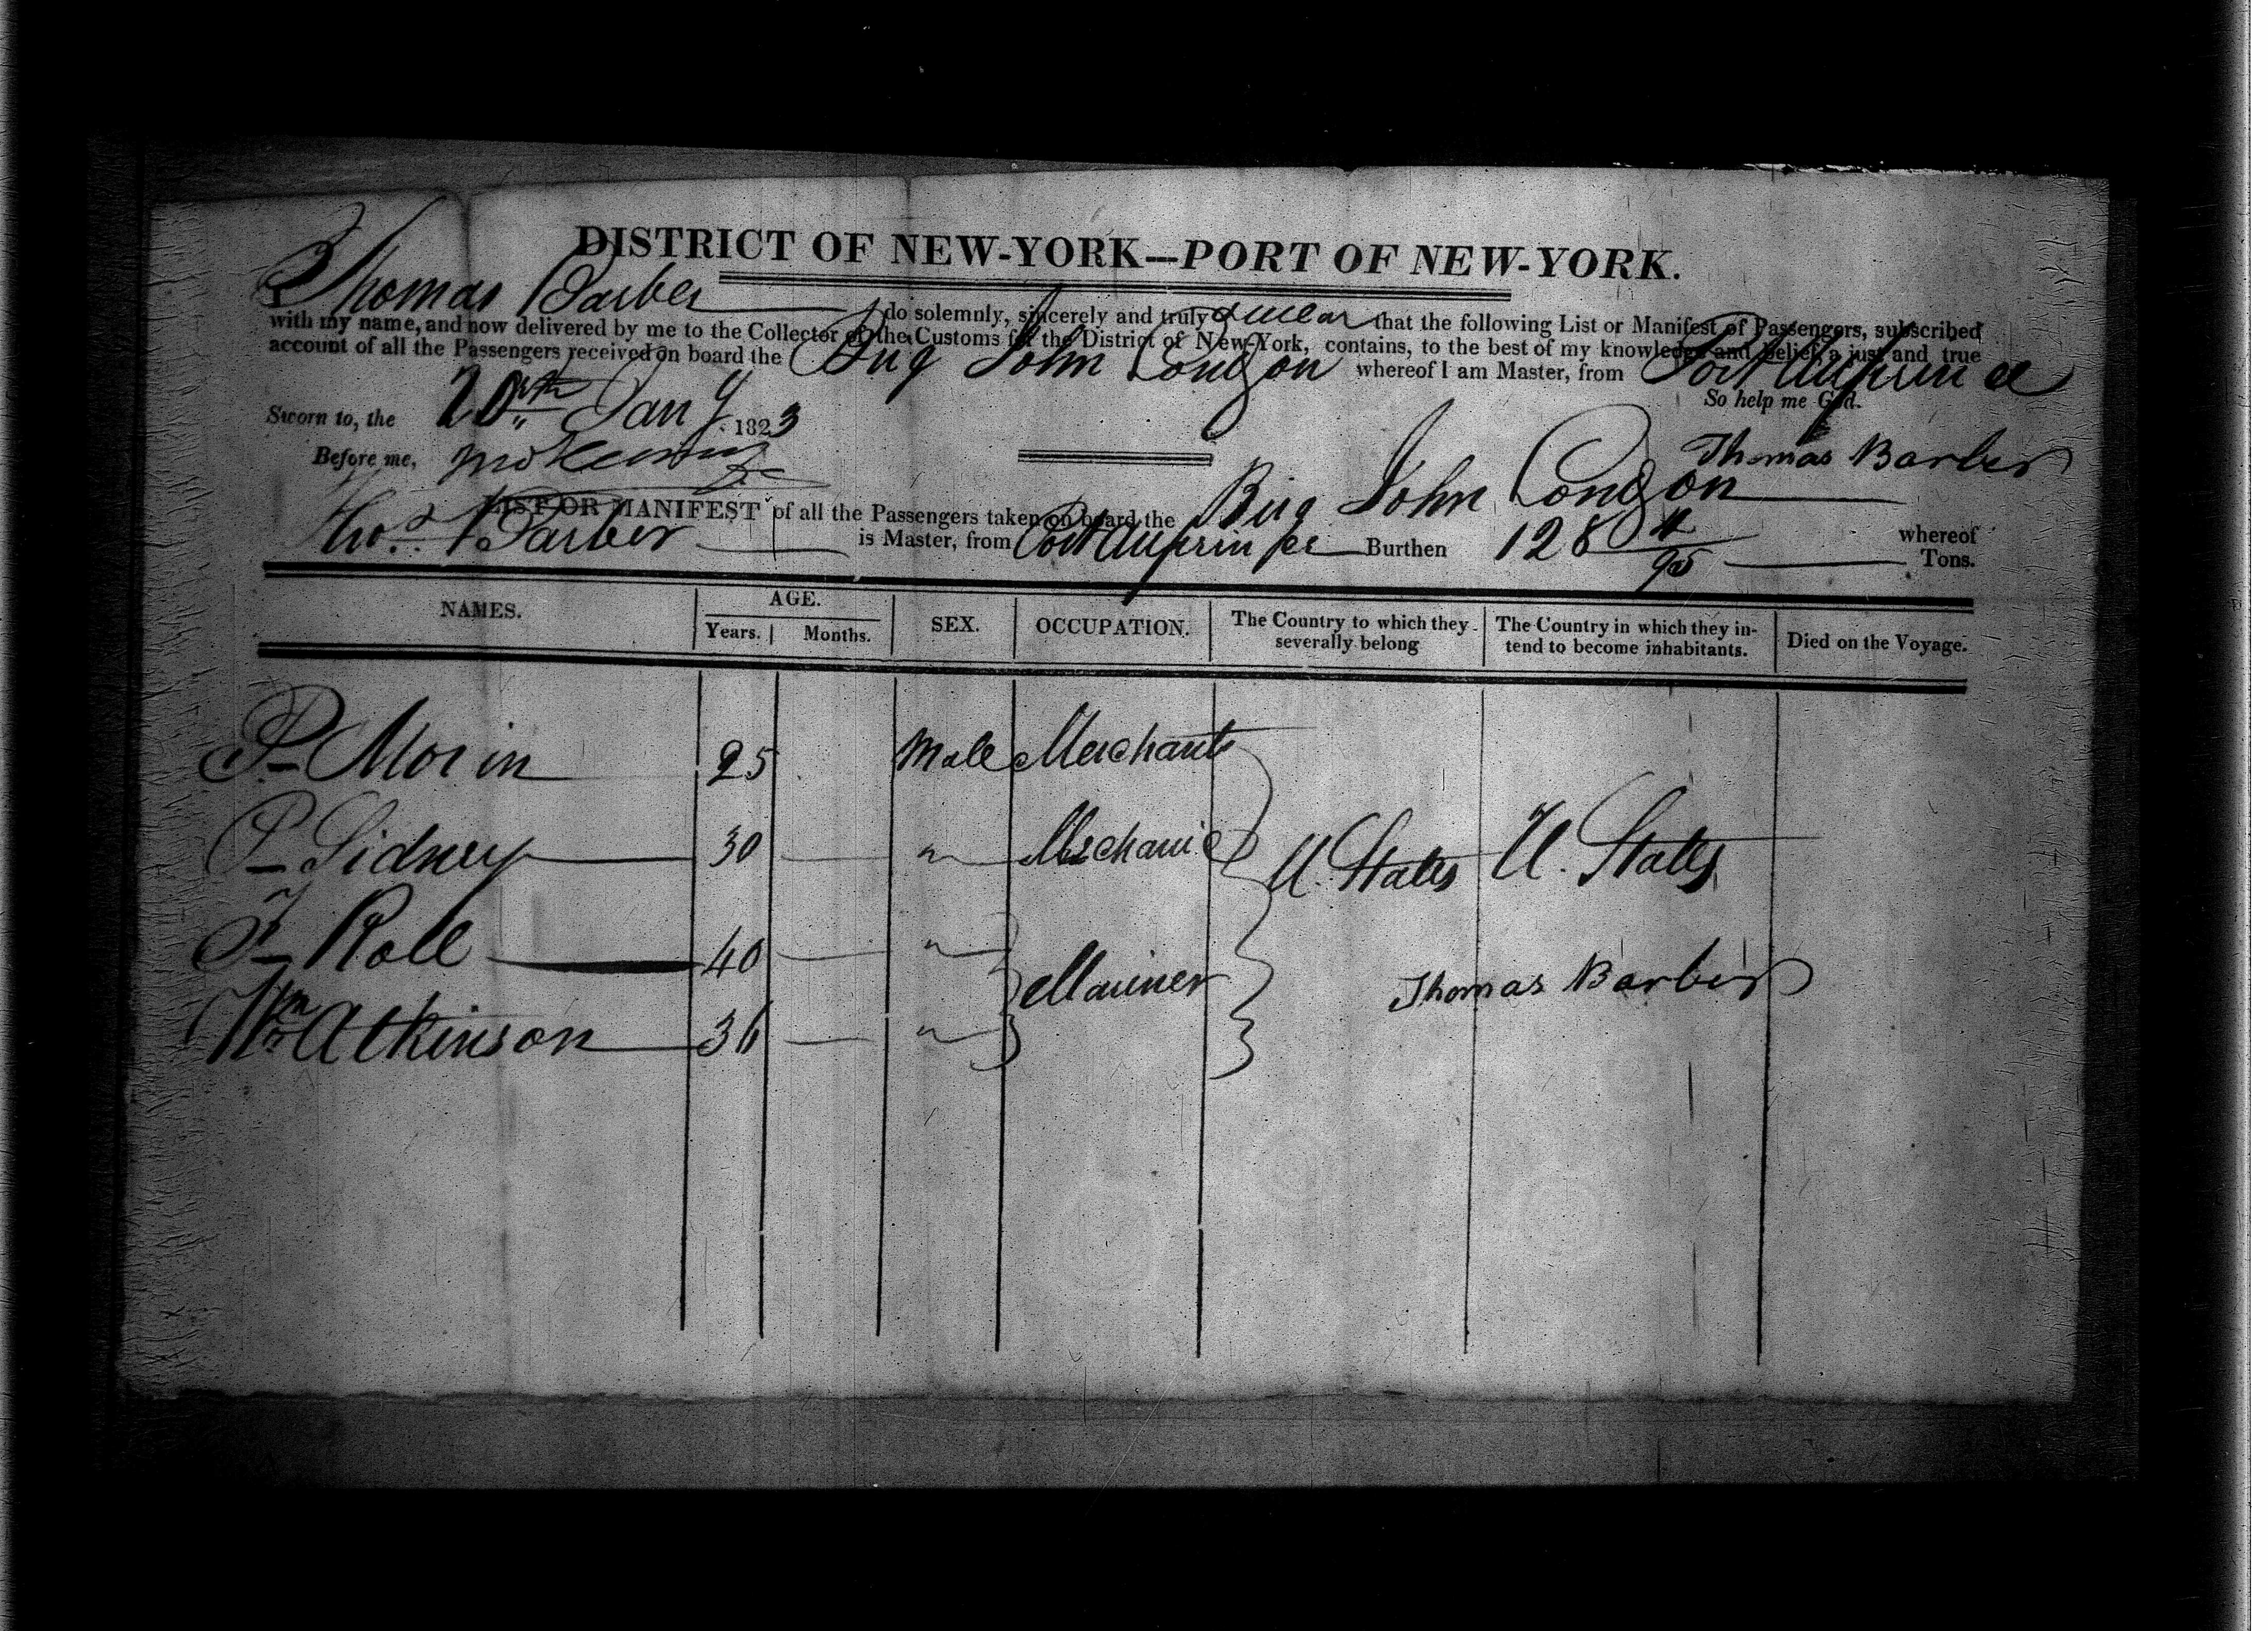 DISTRICT OF NEW-YORK—PORT OF NEW-YORK.
I Thomas Barber do solemnly, sincerely and truly swear that the following List or Manifest of Passengers, subscribed
with my name, and now delivered by me to the Collector of the Customs for the District of New-York, contains, to the best of my knowledge and belief, a just and true
account of all the Passengers received on board the Brig John Congdon whereof I am Master, from Port Au prince
So help me God.
Sworn to, the 20th Jany 1823
Thomas Barber
Before me,
LIST OR MANIFEST of all the Passengers taken on board the Brig John Congdon whereof
Thos. Barber is Master, from Port Au prince Burthen 128 /95 Tons.
NAMES. AGE. Years. Months. SEX. OCCUPATION. The Country to which they severally belong The Country in which they intend to become inhabitants. Died on the Voyage.
P. Morin 25 Male Merchant
P. Sidney 30 " Mechanic U. States U. States
Roll 40 "
Mariner Thomas Barber
Wm Atkinson 36 "